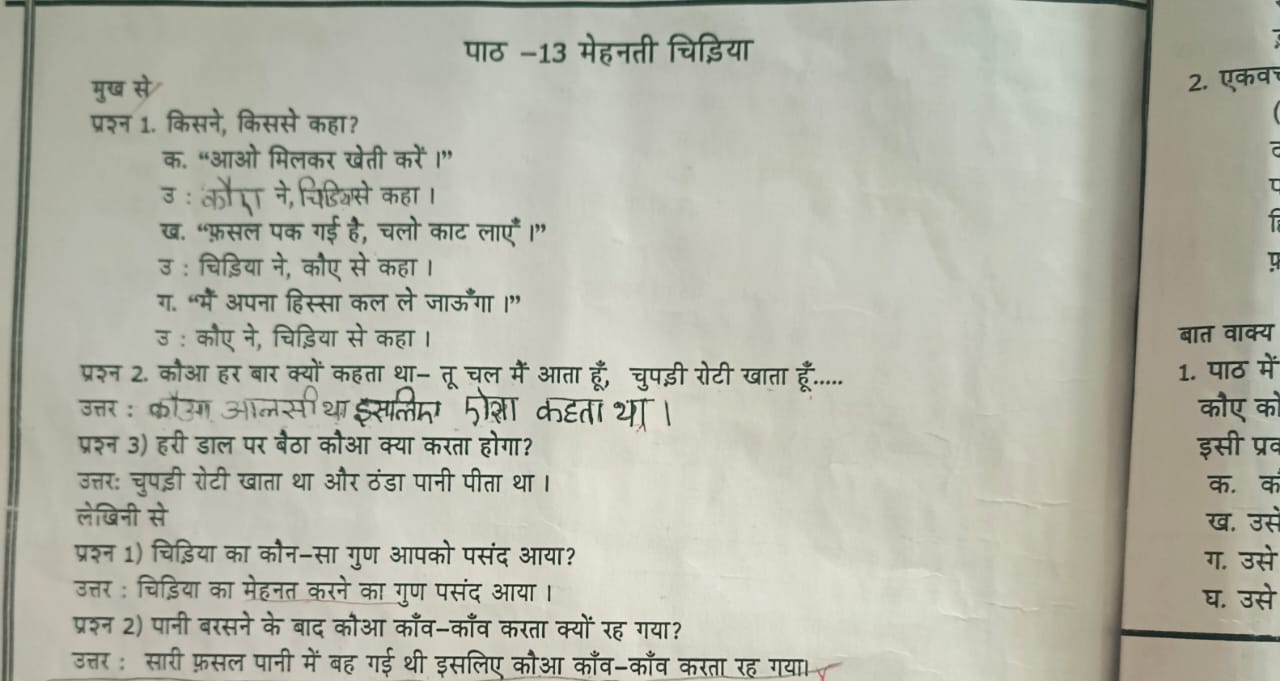 पाठ -13 मेहनती चिड़िया
मुख से
प्रश्न 1. किसने, किससे कहा?
क. “आओ मिलकर खेती करें।”
उ : ने, चिड़िया से कहा।
ख. “फ़सल पक गई है, चलो काट लाएँ।”
उ : चिड़िया ने, कौए से कहा।
ग. “मैं अपना हिस्सा कल ले जाऊँगा।”
उ : कौए ने, चिड़िया से कहा।
प्रश्न 2. कौआ हर बार क्यों कहता था- तू चल मैं आता हूँ, चुपड़ी रोटी खाता हूँ.....
उत्तर : कौआ आलसी था इसलिए कहता था।
प्रश्न 3) हरी डाल पर बैठा कौआ क्या करता होगा?
उत्तर: चुपड़ी रोटी खाता था और ठंडा पानी पीता था।
लेखिनी से
प्रश्न 1) चिड़िया का कौन-सा गुण आपको पसंद आया?
उत्तर : चिड़िया का मेहनत करने का गुण पसंद आया।
प्रश्न 2) पानी बरसने के बाद कौआ काँव-काँव करता क्यों रह गया?
उत्तर : सारी फ़सल पानी में बह गई थी इसलिए कौआ काँव-काँव करता रह गया।
2.
बात वाक्य
1. पाठ में
कौए को
इसी
क.
ख. उसे
ग. उसे
घ. उसे